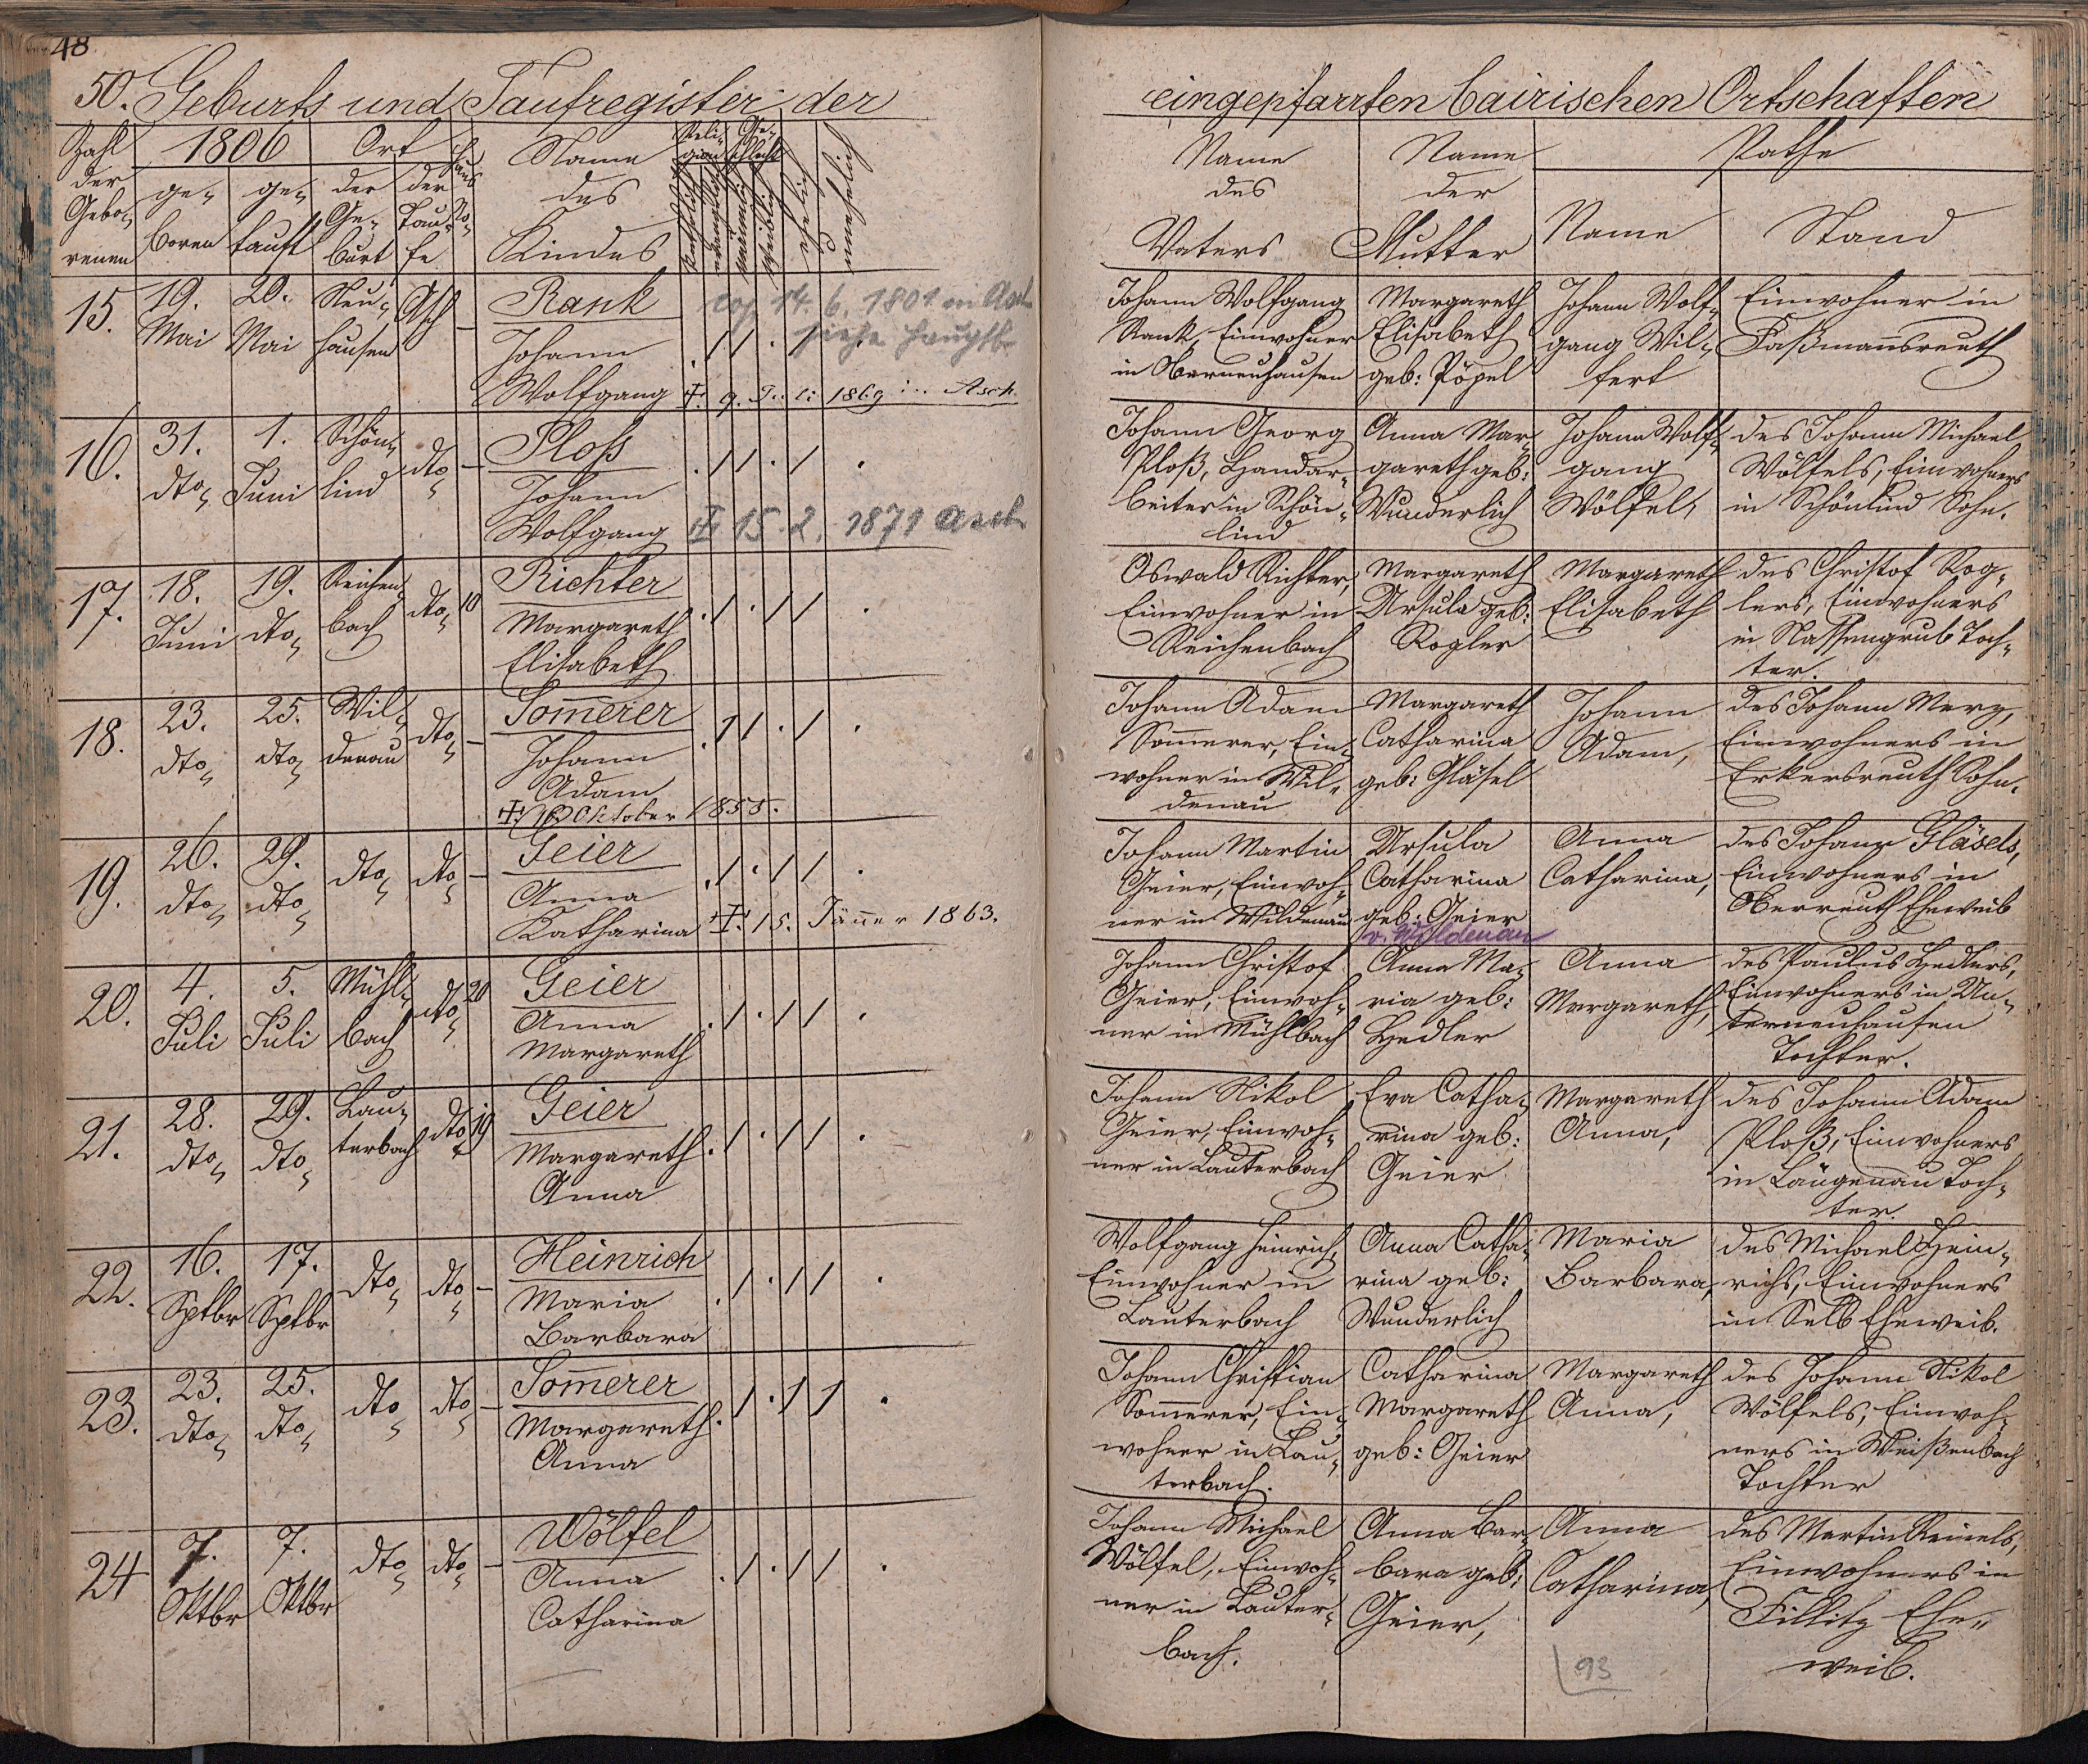 48
50. Geburts und Taufregister der
eingepfarrten bairischen Ortschaften
Zahl der Gebo- renen
1806
ge- boren
ge- tauft
Ort
der Ge- burt
der Tau- fe
Haus No
Name des Kindes
Reli- gion
katholisch
evangelisch
Ge- schlecht
männlich
weiblich
ehelich
unehelich
Name des Vaters
Name der Mutter
Pathe
Name
Stand
15.
19. Mai
20. Mai
Neu-
hausen
Asch
–
Rank
Johann
Wolfgang
cop 14. 6. 1801 in Asch
siehe Hauptb.
. / / . / .
† 9. Juli 1869 in Asch.
Johann Wolfgang
Rank, Einwohner
in Oberneuhausen
Margareth
Elisabeth
geb: Pöpel
Johann Wolf-
gang Wil-
fert
Einwohner in
Faßmannsreuth
16.
31. dto
1. Juni
Schön-
lind
dto
–
Ploß
Johann
Wolfgang
. / / . / .
† 15. 2. 1871 Asch
Johann Georg
Ploß, Handar-
beiter in Schön-
lind
Anna Mar-
gareth geb:
Wunderlich
Johann Wolf-
gang
Wölfel,
des Johann Michael
Wölfels, Einwohners
in Schönlind Sohn.
17.
18. Juni
19. dto
Reichen-
bach
dto
10
Richter
Margareth
Elisabeth
. / . / / .
Oswald Richter,
Einwohner in
Reichenbach
Margareth
Ursula geb:
Rogler
Margareth
Elisabeth
des Christof Rog-
lers, Einwohners
in Nassengrub Toch-
ter.
18.
23. dto
25. dto
Wil-
denau
dto
–
Som̄erer
Johann
Adam
. / / . / .
† Oktober 1855.
Johann Adam
Som̄erer, Ein-
wohner in Wil-
denau
Margareth
Catharina
geb: Gläsel
Johann
Adam,
des Johann Merz,
Einwohners in
Erkersreuth Sohn.
19.
26. dto
29. dto
dto
dto
–
Geier
Anna
Katharina
. / . / / .
† 15. Jän̄er 1863.
Johann Martin
Geier, Einwoh-
ner in Wildenau
Ursula
Catharina
geb: Geier
v. Wildenau
Anna
Catharina,
des Johann Gläsels,
Einwohners in
Oberreuth Eheweib
20.
4. Juli
5. Juli
Mühl-
bach
dto
20
Geier
Anna
Margareth
. / . / / .
Johann Christof
Geier, Einwoh-
ner in Mühlbach
Anna Ma-
ria geb:
Hedler
Anna
Margareth,
des Paulus Hedlers,
Einwohners in Un-
terneuhausen
Tochter.
21.
28. dto
29. dto
Lau-
terbach
dto
19
Geier
Margareth
Anna
. / . / / .
Johann Nikol
Geier, Einwoh-
ner in Lauterbach
Eva Catha-
rina geb:
Geier
Margareth
Anna,
des Johann Adam
Ploß, Einwohners
in Längenau Toch-
ter.
22.
16. Sptbr
17. Sptbr
dto
dto
–
Heinrich
Maria
Barbara
. / . / / .
Wolfgang Heinrich,
Einwohner in
Lauterbach
Anna Catha-
rina geb:
Wunderlich
Maria
Barbara,
des Michael Hein-
richs, Einwohners
in Selb Eheweib.
23.
23. dto
25. dto
dto
dto
–
Som̄erer
Margareth
Anna
. / . / / .
Johann Christian
Som̄erer, Ein-
wohner in Lau-
terbach.
Catharina
Margareth
geb: Geier
Margareth
Anna,
des Johann Nikol
Wölfels, Einwoh-
ners in Weißenbach
Tochter
24
7. Oktbr
7. Oktbr
dto
dto
–
Wölfel
Anna
Catharina
. / . / / .
Johann Michael
Wölfel, Einwoh-
ner in Lauter-
bach.
Anna Bar-
bara geb:
Geier,
Anna
Catharina,
des Martin Reinels,
Einwohners in
Ehe-
weib.
93